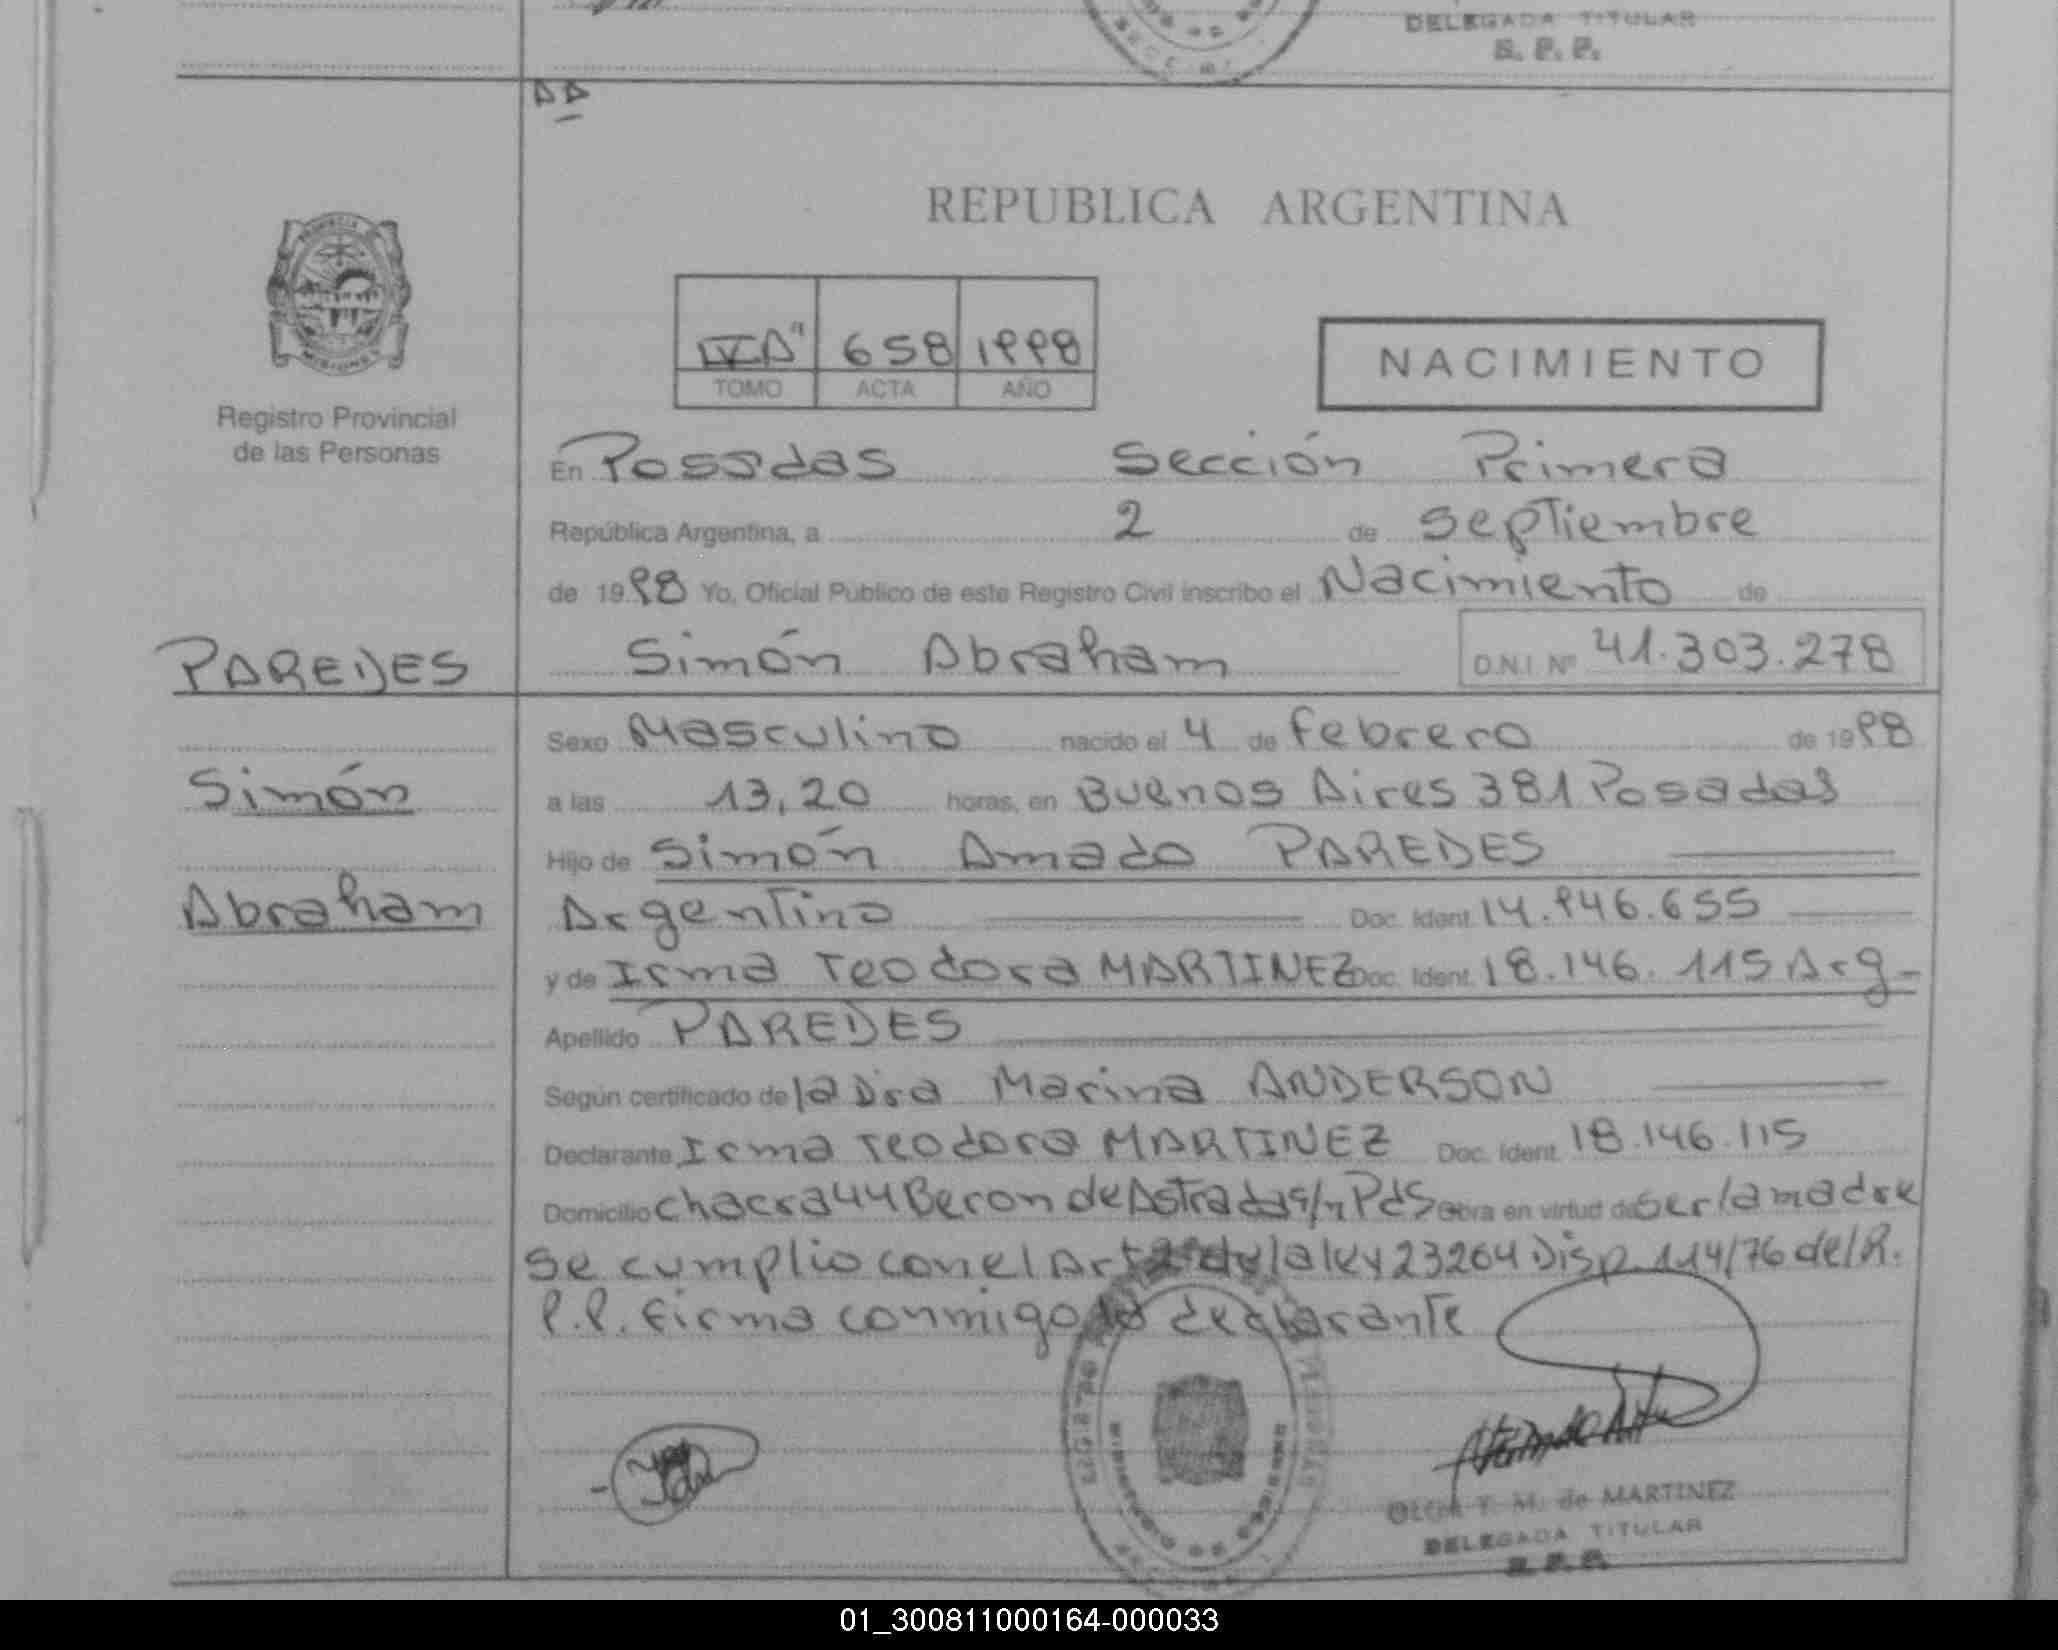 DELEGADA TITULAR
R. P. P.
REPUBLICA ARGENTINA
IV A" 658 1998
TOMO ACTA AÑO
NACIMIENTO
Registro Provincial
de las Personas
En Posadas Sección Primera
República Argentina, a 2 de septiembre
de 1998 Yo, Oficial Público de este Registro Civil inscribo el Nacimiento de
PAREDES
Simón Abraham D.N.I. Nº 41.303.278
Sexo Masculino nacido el 4 de febrero de 1998
Simón
a las 13,20 horas, en Buenos Aires 381 Posadas
Hijo de Simón Amado PAREDES
Abraham
Argentino Doc. Ident. 14.946.655
y de Irma Teodora MARTINEZ Doc. Ident. 18.146.115 Arg-
Apellido PAREDES
Según certificado de la Dra Marina ANDERSON
Declarante Irma Teodora MARTINEZ Doc. Ident. 18.146.115
Domicilio chacra 44 Beron de Astrada s/n Pds Obra en virtud de ser la madre
se cumplio con el Art de la ley 23264 Disp. 114/76 del R.
P.P. firma conmigo la declarante
T. M. de MARTINEZ
DELEGADA TITULAR
R. P. P.
01_300811000164-000033